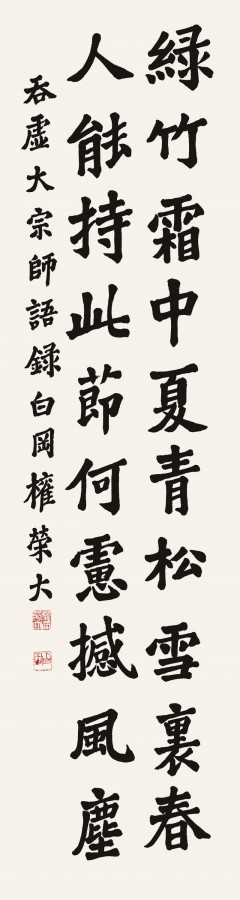 綠竹霜中夏青松雪裏春
人能持此節何憲撼風塵
吞虛大宗師語錄白岡權榮大